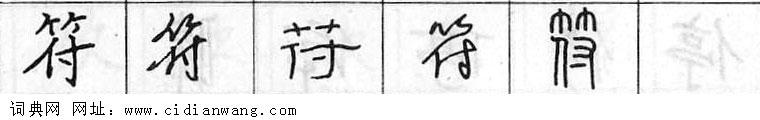 符 符 符 符 符
词典网 网址：www.cidianwang.com